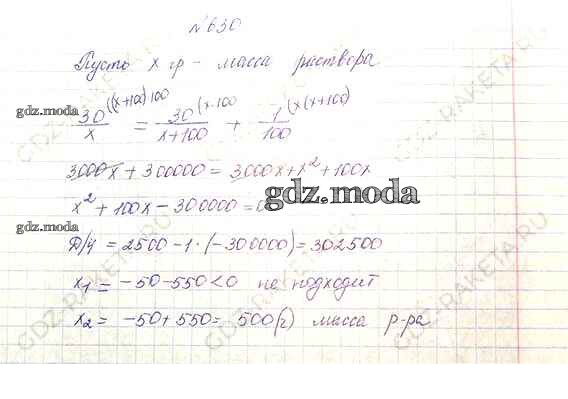 №630
Пусть x гр – масса раствора
30/x ((x+100)100 = 30/(x+100) (x·100 + 1/100 (x(x+100)
3000x + 300000 = 3000x + x² + 100x
x² + 100x – 300000 = 0
Д/4 = 2500 – 1·(–300000) = 302500
x₁ = –50 – 550 < 0 не подходит
x₂ = –50 + 550 = 500(г) масса р-ра
gdz.moda
gdz.moda
gdz.moda
gdz.moda
GDZ-RAKETA.RU
GDZ-RAKETA.RU
GDZ-RAKETA.RU
GDZ-RAKETA.RU